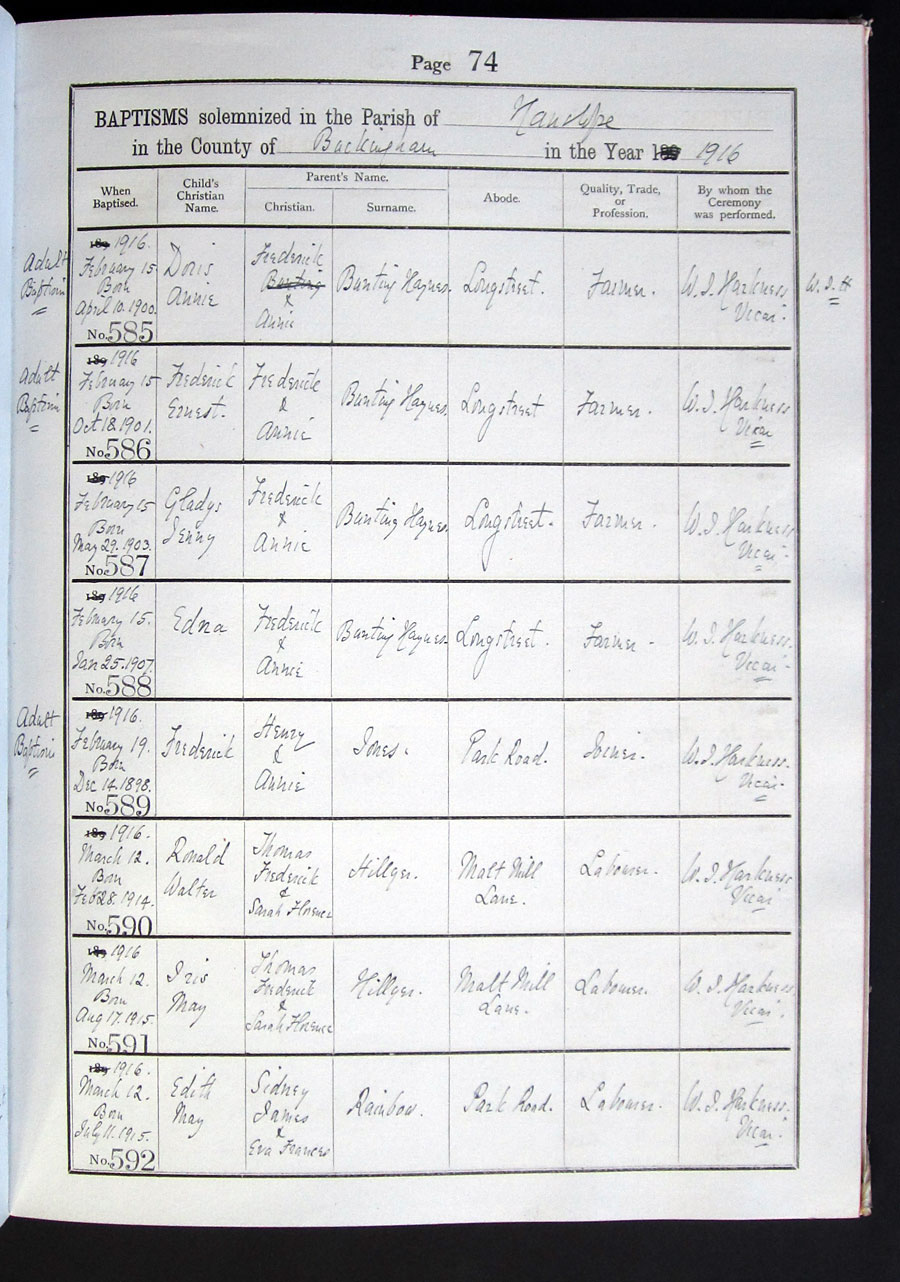 Page 74
BAPTISMS solemnized in the Parish of Hanslope
in the County of Buckingham in the Year 189 1916
When Baptised.
Child's Christian Name.
Parent's Name.
Christian.
Surname.
Abode.
Quality, Trade, or Profession.
By whom the Ceremony was performed.
Adult
Baptism
189 1916.
February 15
Born
April 10. 1900.
No. 585
Doris
Annie
Frederick
Bunting
&
Annie
Bunting Haynes.
Longstreet.
Farmer.
W. J. Harkness
Vicar.
W. J. H
Adult
Baptism
189 1916
February 15
Born
Oct 18. 1901.
No. 586
Frederick
Ernest.
Frederick
&
Annie
Bunting Haynes
Longstreet
Farmer.
W. J. Harkness
Vicar
189 1916
February 15
Born
May 29. 1903.
No. 587
Gladys
Jenny
Frederick
&
Annie
Bunting Haynes
Longstreet.
Farmer.
W. J. Harkness
Vicar.
189 1916
February 15.
Born
Jan 25. 1907.
No. 588
Edna
Frederick
&
Annie
Bunting Haynes.
Longstreet.
Farmer.
W. J. Harkness.
Vicar.
Adult
Baptism
189 1916.
February 19.
Born
Dec 14. 1898.
No. 589
Frederick
Henry
&
Annie
Jones.
Park Road.
Joiner.
W. J. Harkness.
Vicar.
189 1916.
March 12.
Born
Feb 28. 1914.
No. 590
Ronald
Walter
Thomas
Frederick
&
Sarah Florence
Hillyer.
Malt Mill
Lane.
Labourer.
W. J. Harkness
Vicar
189 1916
March 12.
Born
Aug 17. 1915.
No. 591
Iris
May
Thomas
Frederick
&
Sarah Florence
Hillyer.
Malt Mill
Lane.
Labourer.
W. J. Harkness
Vicar.
189 1916.
March 12.
Born
July 11. 1915.
No. 592
Edith
May
Sidney
James
&
Eva Frances
Rainbow.
Park Road.
Labourer.
W. J. Harkness.
Vicar.